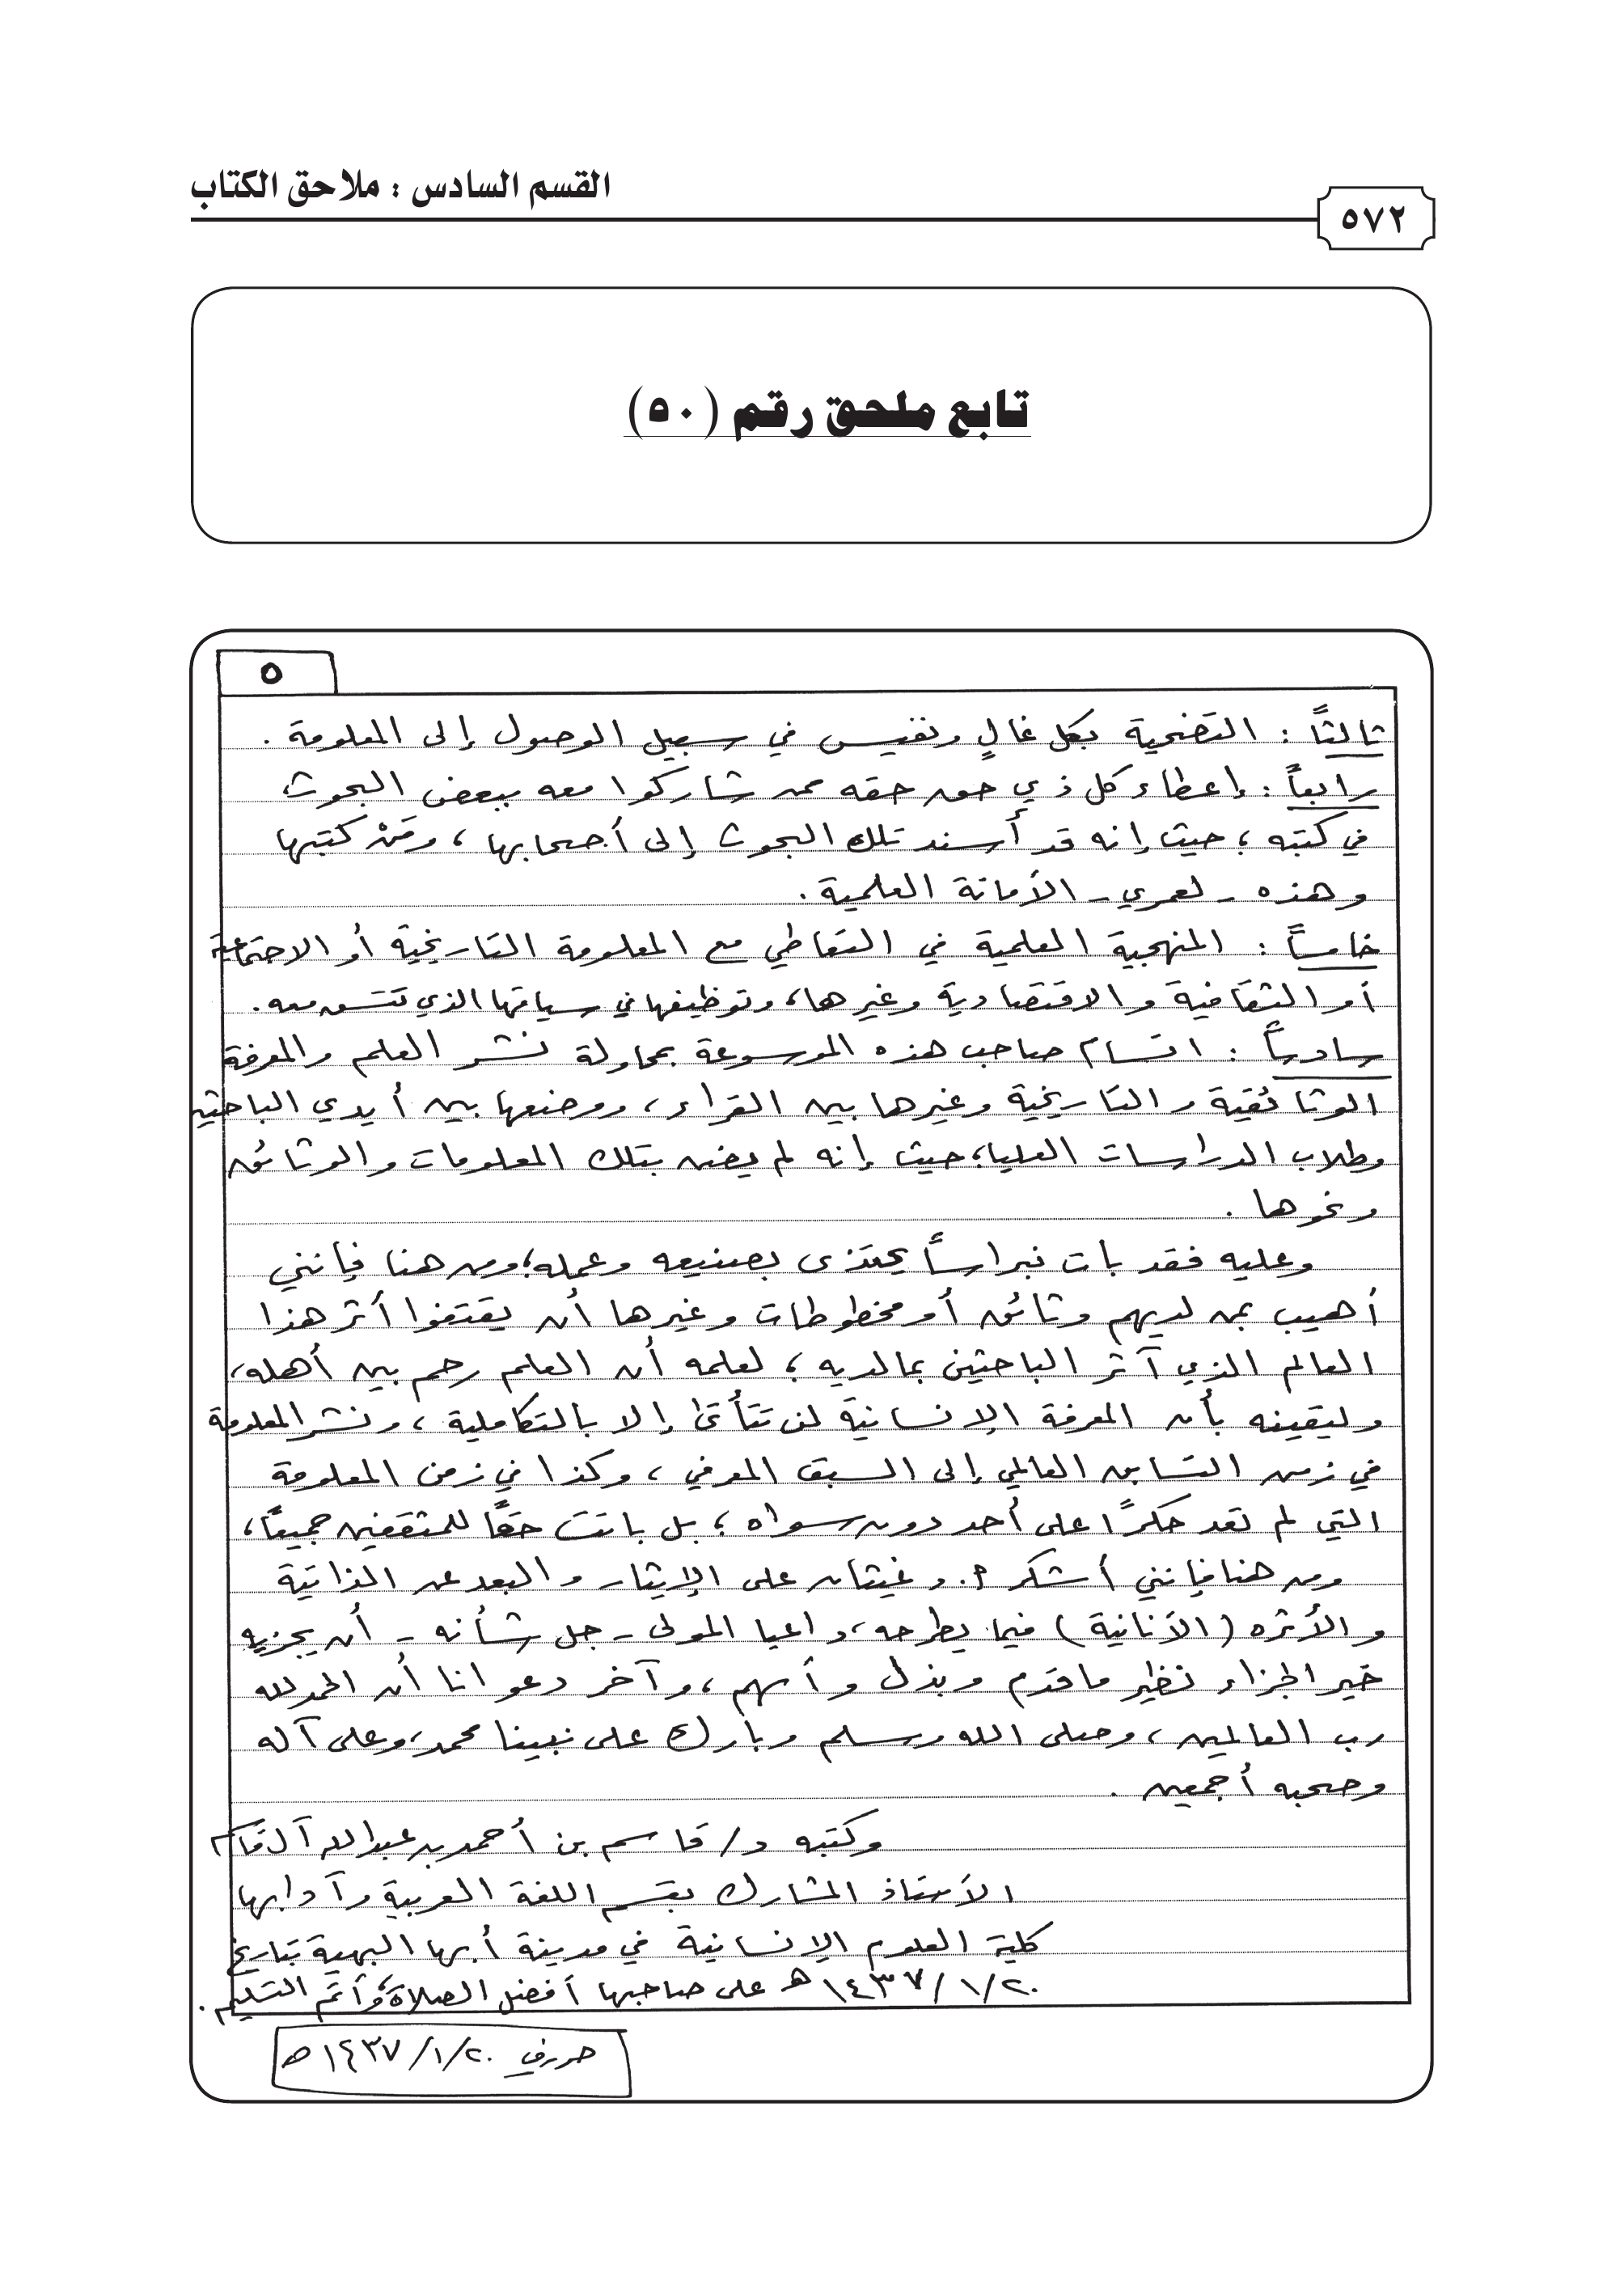 القسم السادس : ملاحق الكتاب
٥٧٢
تابع ملحق رقم (٥٠)
٥
ثالثاً : التضحية بكل غالٍ ونفيس في سبيل الوصول إلى المعلومة .
رابعاً : إعطاء كل ذي حق حقه ممن شاركوا معه ببعض البحوث
في كتبه ؛ حيث إنه قد أسند تلك البحوث إلى أصحابها ، ومَنْ كتبها
وهذه - لعمري - الأمانة العلمية .
خامساً : المنهجية العلمية في التعاطي مع المعلومة التاريخية أو الاجتماعية
أو الثقافية والاقتصادية وغيرها، وتوظيفها في سياقها الذي تتسق معه .
سادساً : اتسام صاحب هذه الموسوعة بمحاولة نشر العلم والمعرفة
الوثائقية والتاريخية وغيرها بين القراء ، ووضعها بين أيدي الباحثين
وطلاب الدراسات العليا، حيث إنه لم يضن بتلك المعلومات والوثائق
ونحوها .
وعليه فقد بات نبراساً يحتذى بصنيعه وعمله؛ ومن هنا فإنني
أهيب بمن لديهم وثائق أو مخطوطات وغيرها أن يقتفوا أثر هذا
العالم الذي آثر الباحثين بما لديه ؛ لعلمه أن العلم رحم بين أهله،
وليقينه بأن المعرفة الإنسانية لن تتأتى إلا بالتكاملية ، ونشر المعلومة
في زمن التسابق العالمي إلى السبق المعرفي ، وكذا في زمن المعلومة
التي لم تعد حكرًا على أحد دون سواه ؛ بل باتت حقاً للمثقفين جميعاً ،
ومن هنا فإنني أشكر أ. د غيثان على الإيثار والبعد عن الذاتية
والأثره ( الأنانية ) فيما يطرحه ، داعيا المولى - جل شأنه - أن يجزيه
خير الجزاء نظير ما قدم وبذل وأسهم ، وآخر دعوانا أن الحمد لله
رب العالمين ، وصلى الله وسلم وبارك على نبينا محمد، وعلى آله
وصحبه أجمعين .
وكتبه د/ قاسم بن أحمد بن عبدالله آل قاسم
الأستاذ المشارك بقسم اللغة العربية وآدابها
كلية العلوم الإنسانية في مدينة أبها البهية بتاريخ
١٤٣٧/١/٢٠ هـ على صاحبها أفضل الصلاة وأتم التسليم .
حرر في ١٤٣٧/١/٢٠ هـ